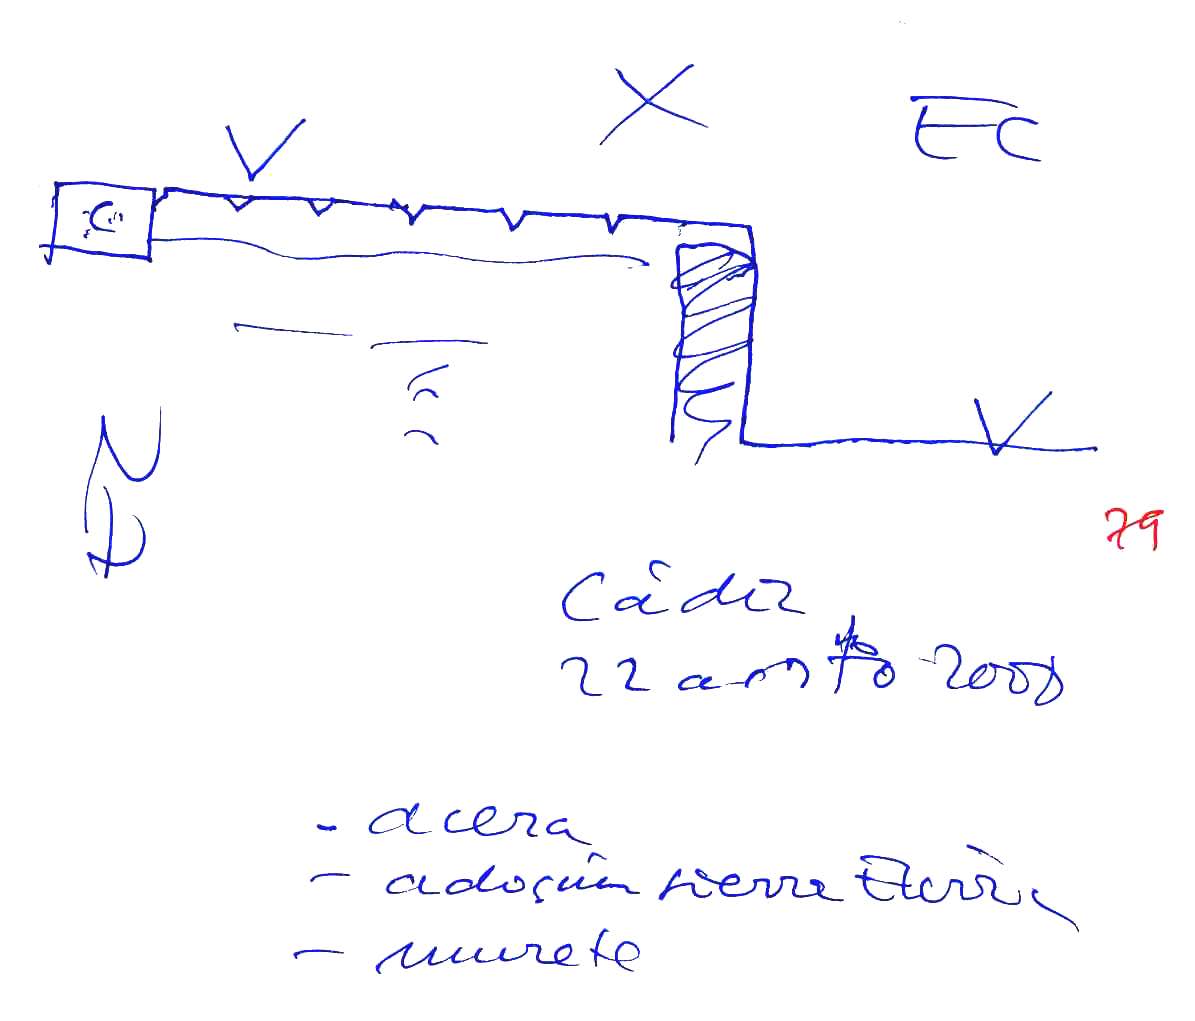 V
X
EC
C
V
N
D
79
Cádiz
22 agosto 2008
- acera
- adoquín sierra Elvira
- murete